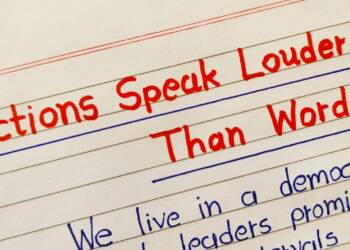 ctions Speak Louder
Than Word
We live in a democ
leaders promi